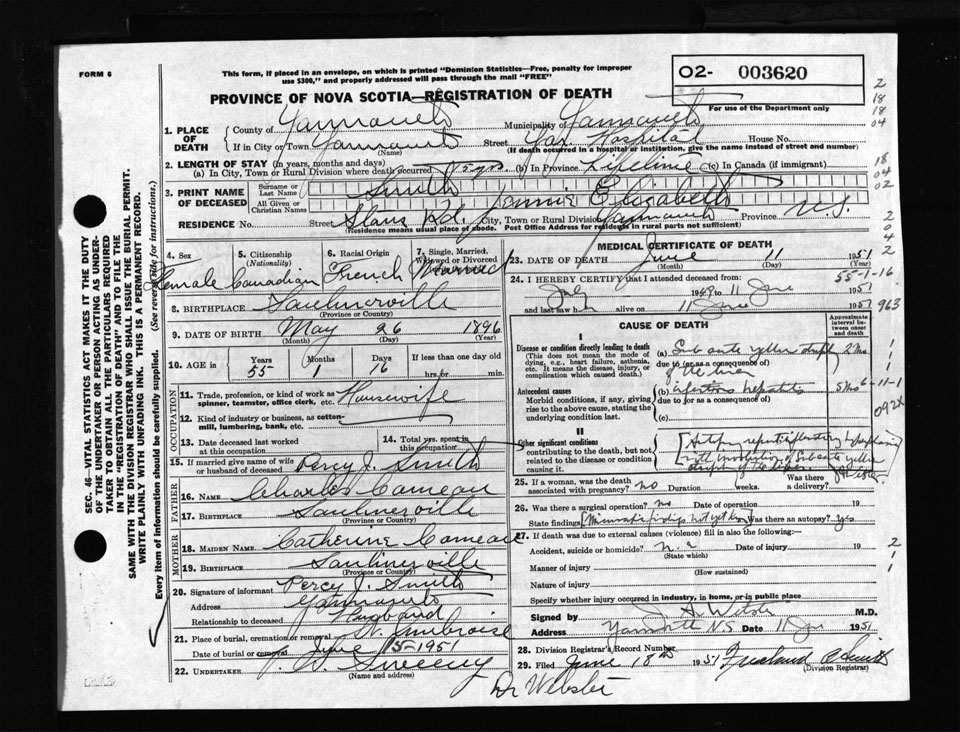 FORM 6
This form, if placed in an envelope, on which is printed "Dominion Statistics—Free, penalty for improper
use $300," and properly addressed will pass through the mail "FREE"
O2- 003620
For use of the Department only
PROVINCE OF NOVA SCOTIA—REGISTRATION OF DEATH
2
18
18
04
1. PLACE OF DEATH
County of Yarmouth Municipality of Yarmouth
If in City or Town Yarmouth Street Yar Hospital House No.
(Name) (If death occurred in a hospital or institution, give the name instead of street and number)
2. LENGTH OF STAY (in years, months and days)
(a) In City, Town or Rural Division where death occurred yrs (b) In Province Lifetime (c) In Canada (if immigrant)
18
04
02
3. PRINT NAME OF DECEASED
Surname or Last Name Smith
All Given or Christian Names Jennie Elizabeth
RESIDENCE No. Street Starrs Rd. City, Town or Rural Division Yarmouth Province N.S.
(Residence means usual place of abode. Post Office Address for residents in rural parts not sufficient)
2
0
04
2
4. Sex Female
5. Citizenship (Nationality) Canadian
6. Racial Origin French
7. Single, Married, Widowed or Divorced Married
8. BIRTHPLACE Saulnierville
(Province or Country)
9. DATE OF BIRTH May 26 1896
(Month) (Day) (Year)
10. AGE in Years 55 Months 1 Days 16 If less than one day old hrs. or min.
OCCUPATION
11. Trade, profession, or kind of work as spinner, teamster, office clerk, etc. Housewife
12. Kind of industry or business, as cotton-mill, lumbering, bank, etc.
13. Date deceased last worked at this occupation
14. Total yrs. spent in this occupation
15. If married give name of wife or husband of deceased Percy J. Smith
FATHER
16. NAME Charles Comeau
17. BIRTHPLACE Saulnierville
(Province or Country)
MOTHER
18. MAIDEN NAME Catherine Comeau
19. BIRTHPLACE Saulnierville
(Province or Country)
20. Signature of informant Percy J. Smith
Address Yarmouth
Relationship to deceased Husband
21. Place of burial, cremation or removal St. Ambroise
Date of burial or removal June 15-1951
22. UNDERTAKER Sweeny
(Name and address)
Dr Webster
MEDICAL CERTIFICATE OF DEATH
23. DATE OF DEATH June 11 1951
(Month) (Day) (Year)
24. I HEREBY CERTIFY that I attended deceased from 55-1-16
19 to 11 June 1951
and last saw h alive on 11 June 1951
963
CAUSE OF DEATH
Approximate interval between onset and death
I
Disease or condition directly leading to death
(This does not mean the mode of dying, e.g., heart failure, asthenia, etc. It means the disease, injury, or complication which caused death.)
(a) Sub acute yellow atrophy 2 Mos
due to (or as a consequence of) of liver
Antecedent causes
Morbid conditions, if any, giving rise to the above cause, stating the underlying condition last.
(b) Infectious hepatitis 5 Mos
due to (or as a consequence of)
(c)
6-11-1
092X
II
Other significant conditions
contributing to the death, but not related to the disease or condition causing it.
Autopsy report
Subacute yellow
atrophy of the liver
25. If a woman, was the death associated with pregnancy? no Duration weeks. Was there a delivery?
26. Was there a surgical operation? No Date of operation 19
State findings not yet Was there an autopsy? yes
27. If death was due to external causes (violence) fill in also the following:—
Accident, suicide or homicide? Date of injury 19
(State which)
Manner of injury
(How sustained)
Nature of injury
Specify whether injury occurred in industry, in home, or in public place
2
1
1
Signed by M.D.
Address Yarmouth N.S Date 11 Jun 1951
28. Division Registrar's Record Number
29. Filed June 18th 1951
(Division Registrar)
SEC. 46—VITAL STATISTICS ACT MAKES IT THE DUTY
OF THE UNDERTAKER OR PERSON ACTING AS UNDER-
TAKER TO OBTAIN ALL THE PARTICULARS REQUIRED
IN THE "REGISTRATION OF DEATH" AND TO FILE THE
SAME WITH THE DIVISION REGISTRAR WHO SHALL ISSUE THE BURIAL PERMIT.
WRITE PLAINLY WITH UNFADING INK. THIS IS A PERMANENT RECORD.
Every item of information should be carefully supplied. (See reverse side for instructions.)